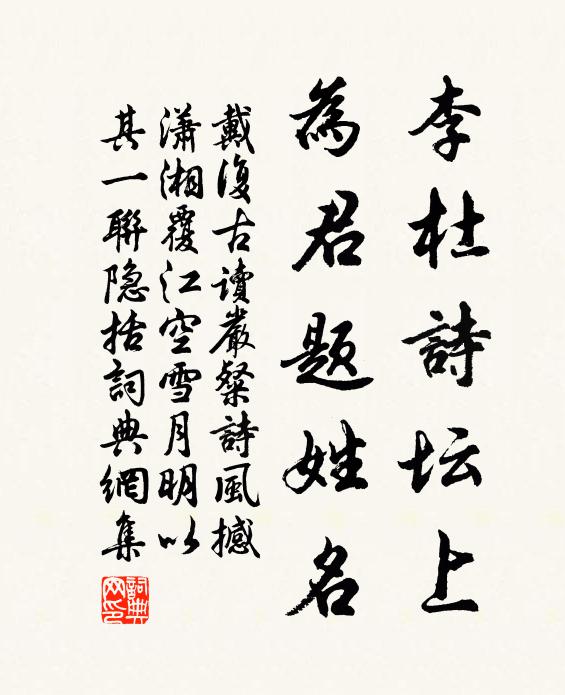 李杜詩坛上
為君題姓名
戴復古讀嚴粲詩風撼
瀟湘覆江空雪月明以
其一聯隐括詞典網集
詞典网印